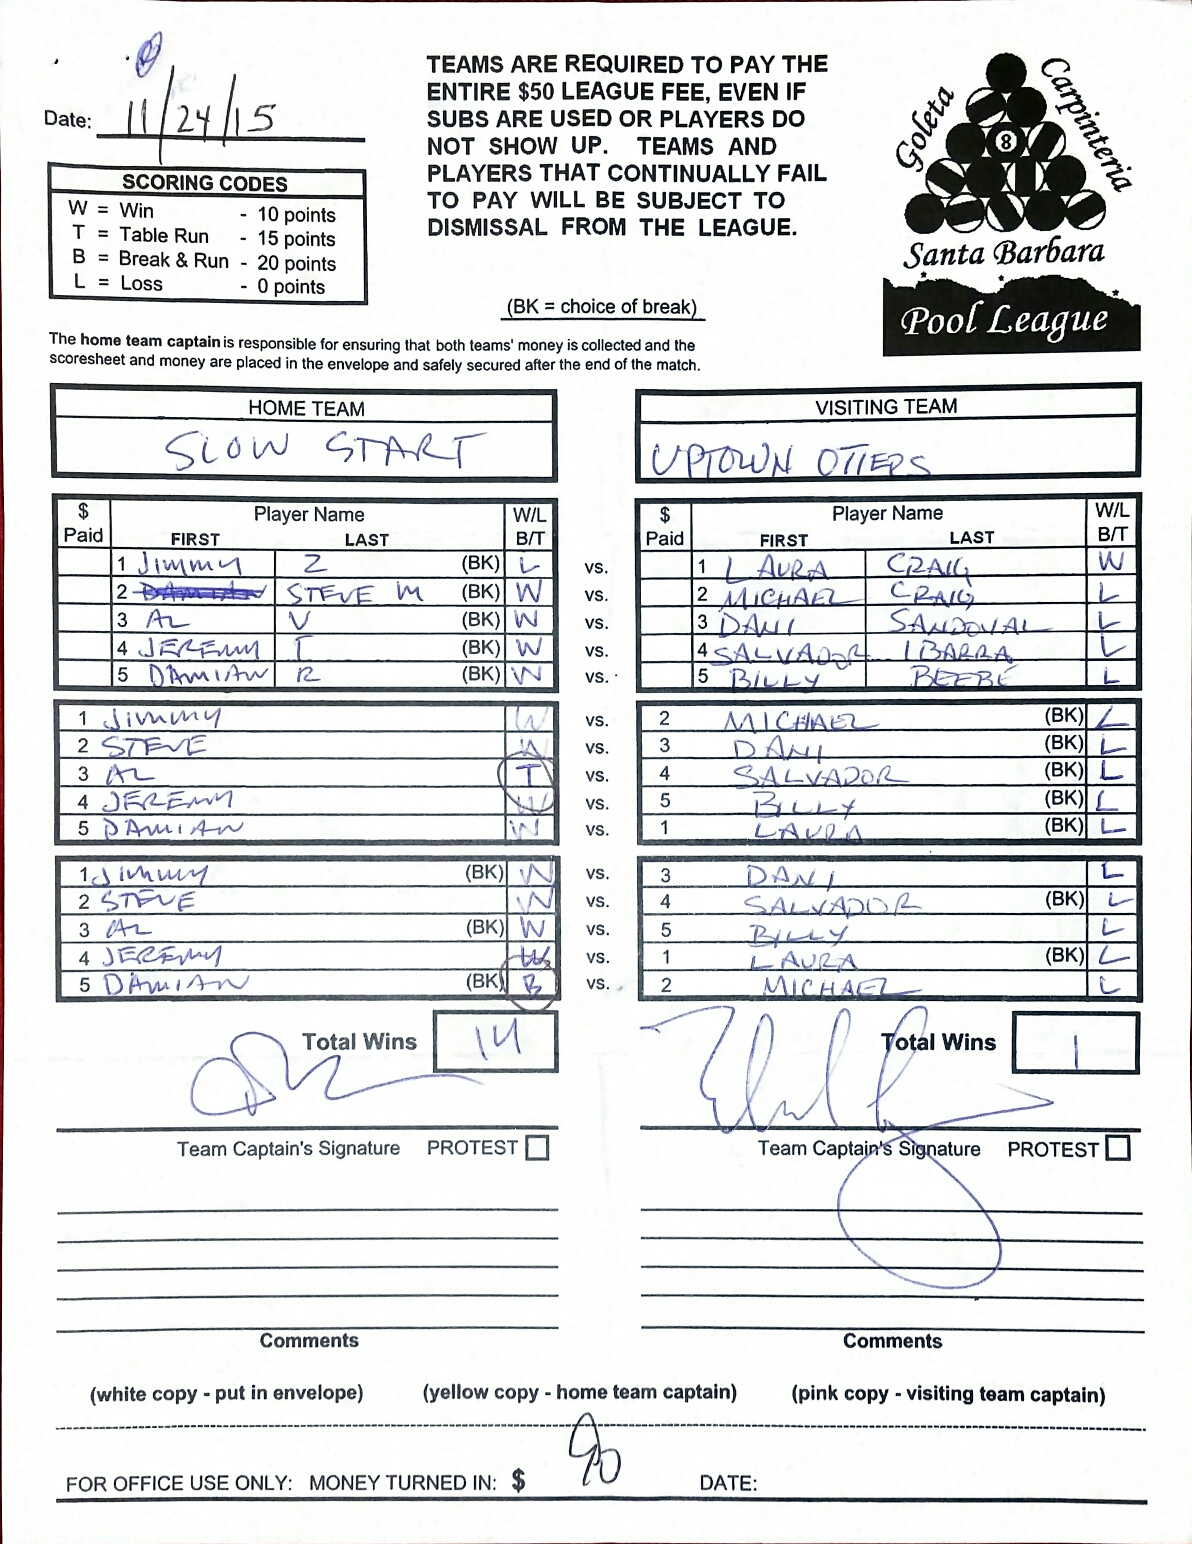 Date: 11/24/15
TEAMS ARE REQUIRED TO PAY THE
ENTIRE $50 LEAGUE FEE, EVEN IF
SUBS ARE USED OR PLAYERS DO
NOT SHOW UP. TEAMS AND
PLAYERS THAT CONTINUALLY FAIL
TO PAY WILL BE SUBJECT TO
DISMISSAL FROM THE LEAGUE.
Goleta
Carpinteria
8
Santa Barbara
Pool League
SCORING CODES
W = Win - 10 points
T = Table Run - 15 points
B = Break & Run - 20 points
L = Loss - 0 points
(BK = choice of break)
The home team captain is responsible for ensuring that both teams' money is collected and the
scoresheet and money are placed in the envelope and safely secured after the end of the match.
HOME TEAM VISITING TEAM
SLOW START UPTOWN OTTERS
$ Paid Player Name FIRST LAST W/L B/T $ Paid Player Name FIRST LAST W/L B/T
1 JIMMY Z (BK) L vs. 1 LAURA CRAIG W
2 DAMIAN STEVE M (BK) W vs. 2 MICHAEL CRAIG L
3 AL V (BK) W vs. 3 DANI SANDOVAL L
4 JEREMY T (BK) W vs. 4 SALVADOR IBARRA L
5 DAMIAN R (BK) W vs. 5 BILLY BEEBE L
1 JIMMY W vs. 2 MICHAEL (BK) L
2 STEVE W vs. 3 DANI (BK) L
3 AL T vs. 4 SALVADOR (BK) L
4 JEREMY W vs. 5 BILLY (BK) L
5 DAMIAN W vs. 1 LAURA (BK) L
1 JIMMY (BK) W vs. 3 DANI L
2 STEVE W vs. 4 SALVADOR (BK) L
3 AL (BK) W vs. 5 BILLY L
4 JEREMY W vs. 1 LAURA (BK) L
5 DAMIAN (BK) B vs. 2 MICHAEL L
Total Wins 14 Total Wins 1
Team Captain's Signature PROTEST Team Captain's Signature PROTEST
Comments Comments
(white copy - put in envelope) (yellow copy - home team captain) (pink copy - visiting team captain)
FOR OFFICE USE ONLY: MONEY TURNED IN: $ 90 DATE: